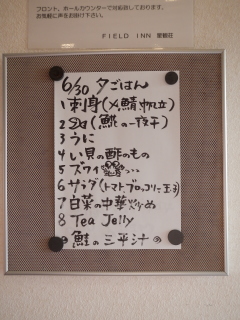 フロント、ホールカウンターで対応致しております。
お気軽に声をお掛け下さい。
FIELD INN 星観荘
6/30 夕ごはん
1 刺身(〆鯖 帆立)
2 (鯱の一夜干)
3 うに
4 い貝の酢のもの
5 ズワイ
6 サラダ(トマト、ブロッコリー 玉子)
7 白菜の中華炒め
8 Tea Jelly
⑨ 鮭の三平汁